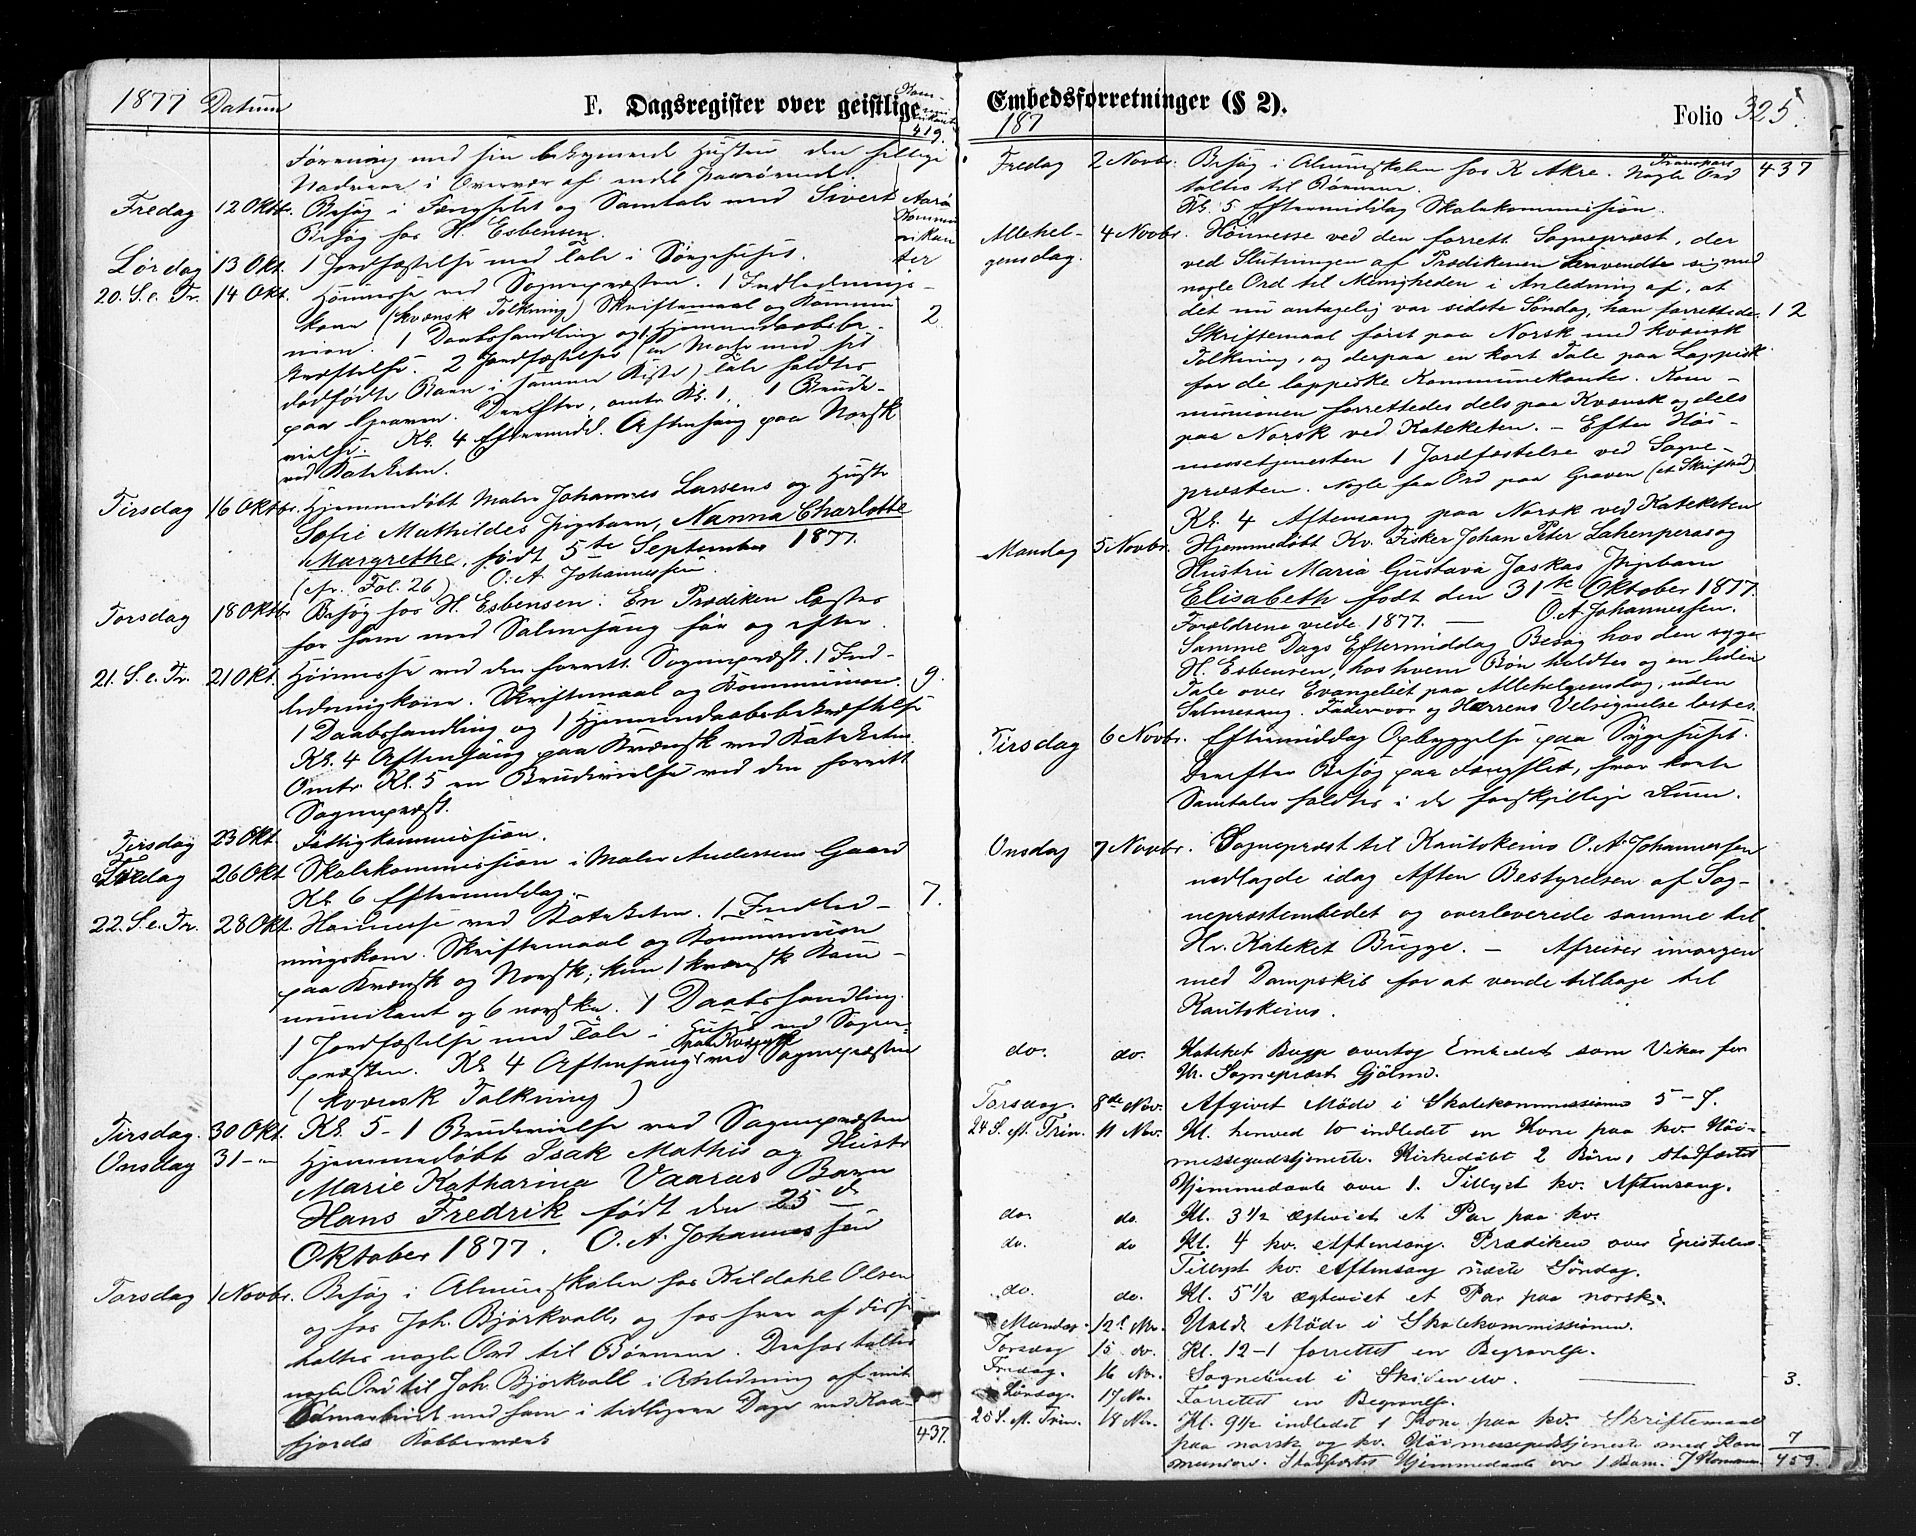 1877 Datum F. Dagsregister over geistlige
Kom-
munikanter
419.
Forening med sin bekymrede Hustru den hellige
Nadvere, i Overvær af endel paarørende.
Fredag 12 Oktbr. Besøg i Fængslet og Samtale med Sivert Aarø
Besøg hos H. Esbensen.
Kommu
nikan
ter
Lørdag 13 Okt. 1 Jordfæstelse med Tale i Sørgehuset.
20. S. e. Tr. 14 Okt. Høimesse ved Sognepræsten. 1 Indlednings-
kone (kvænsk Tolkning) Skriftemaal og Kommu 2.
nion. 1 Daabshandling og 1 Hjemmedaabsbe-
kræftelse. 2 Jordfæstelser (en Moder med sit
dødfødte Barn i samme Kiste) Tale holdtes
paa Graven. Derefter, omtr. Kl. 1, 1 Brude-
vielse. Kl. 4 Eftermidd. Aftensang paa Norsk
ved Kateketen.
Tirsdag 16 Oktbr. Hjemmedøbt Maler Johannes Larsens og Hustr
Sofie Mathildes Pigebarn, Nanna Charlotte
Margrethe, født 5te September 1877.
(cfr. Fol. 26) O. A. Johannessen.
Torsdag 18 Oktbr. Besøg hos H. Esbensen. En Prædiken læstes
for ham med Salmesang før og efter.
21. S. e. Tr. 21 Okt. Høimesse ved den forrett. Sognepræst. 1 Ind-
ledningskone. Skriftemaal og Kommunion. 9.
1 Daabshandling og 1 Hjemmedaabsbekræftelse
Kl. 4 Aftensang paa Kvænsk ved Kateketen
Omtr. Kl. 5 en Brudevielse ved den forrett
Sognepræst.
Tirsdag 23 Okt. Fattigkommission.
Fredag 26 Okt Skolekommission i Maler Andersens Gaard
Kl. 6 Eftermiddag. 7.
22. S. e. Tr. 28 Okt. Høimesse ved Kateketen. 1 Indled-
ningskone. Skriftemaal og Kommunion
paa Kvænsk og Norsk; kun 1 kvænsk Kom-
munikant og 6 norske. 1 Daabshandling.
1 Jordfæstelse med Tale i Huset ved Sogne-
præsten. Kl. 4 Aftensang paa Kvænsk ved Sognepræsten
(kvænsk Tolkning)
Tirsdag. 30 Okt. Kl. 5 - 1 Brudevielse ved Sognepræsten
Onsdag 31 -"- Hjemmedøbt Isak Mathis og Hustr
Marie Katharina Vaaras Barn
Hans Fredrik født den 25 d
Oktober 1877. O. A. Johannessen
Torsdag 1 Novbr. Besøg i Almueskolen hos Kildahl Olsen
og hos Joh. Bjørkvall, og hos hver af disse
taltes nogle Ord til Børnene. Desuden taltes
nogle Ord til Joh. Bjørkvall i Anledning af mit
Samarbeide med ham i tidligere Dage ved Kaa-
fjords Kobberværk 437.
Embedsforretninger (§ 2).
187
Folio 325.
Fredag 2 Novbr. Besøg i Almueskolen hos K Akre. Nogle Ord Transport 437
taltes til Børnene.
Kl. 5 Eftermiddag Skolekommission.
Allehel- 4 Novbr. Høimesse ved den forrett Sognepræst, der
gensdag. ved Slutningen af Prædikenen henvendte sig med
nogle Ord til Menigheden i Anledning af, at
det nu antagelig var sidste Søndag, han forrettede. 12
Skriftemaal først paa Norsk med kvænsk
Tolkning, og derpaa en kort Tale paa Lappisk
for de lappiske Kommunikanter. Kom-
munionen forrettedes dels paa Kvænsk og dels
paa Norsk ved Kateketen. - Efter Høi-
messetjenesten 1 Jordfæstelse ved Sogne-
præsten. Nogle faa Ord paa Graven (et Skriftsted)
Kl. 4 Aftensang paa Norsk ved Kateketen
Mandag 5 Novbr. Hjemmedøbt Kv. Fisker Johan Peter Lahenperas og
Hustru Maria Gustava Joskas Pigebarn
Elisabeth født den 31te Oktober 1877.
Forældrene viede 1877. - O. A. Johannessen.
Samme Dags Eftermiddag Besøg hos den syge
H. Esbensen, hos hvem Bøn holdtes og en liden
Tale over Evangeliet paa Allehelgensdag, uden
Salmesang. Fadervor og Herrens Velsignelse læstes.
Tirsdag 6 Novbr. Eftermiddag Opbyggelse paa Sygehuset.
Derefter Besøg paa Fængslet, hvor korte
Samtaler holdtes i de forskjellige Rum.
Onsdag 7 Novbr. Sognepræst til Kautokeino O. A. Johannessen
nedlagde idag Aften Bestyrelsen af Sog-
nepræstembedet og overleverede samme til
Hr. Kateket Bugge. - Afreiser imorgen
med Dampskib for at vende tilbage til
Kautokeino.
do. do. Kateket Bugge overtog Embedet som Vikar for
Hr. Sognepræst Gjølme.
Torsdag. 8de Nov. Afgivet Møde i Skolekommissionen 5-7.
24 S. e. Trin. 11 Nov. Kl. henved 10 indledet en Kone paa kv. Høi-
messegudstjeneste. Kirkedøbt 2 Børn, stadfæstet
Hjemmedaabe over 1. Tillyst kv. Aftensang.
do. do. Kl. 3 1/2 ægteviet et Par paa kv.
do. do Kl. 4 kv. Aftensang. Prædiken over Epistelen.
Tillyst kv. Aftensang næste Søndag.
do. do. Kl. 5 1/2 ægteviet et Par paa norsk.
Mandag. 12t Nov. Holdt Møde i Skolekommissionen.
Torsdag 15 do. Kl. 12-1 forrettet en Begravelse.
Fredag. 16 Nov. Sognebud i Skiden do. 3.
Lørdag. 17 Nov. Forrettet en Begravelse.
25 S. e. Trin. 18 Nov. Kl. 9 1/2 indledet 1 Kone paa kv. Skriftemaal
paa norsk og kv. Høimessegudstjeneste med Kom 7
munion. Stadfæstet Hjemmedaabe over 1 Barn. 7 Kommun. 459.